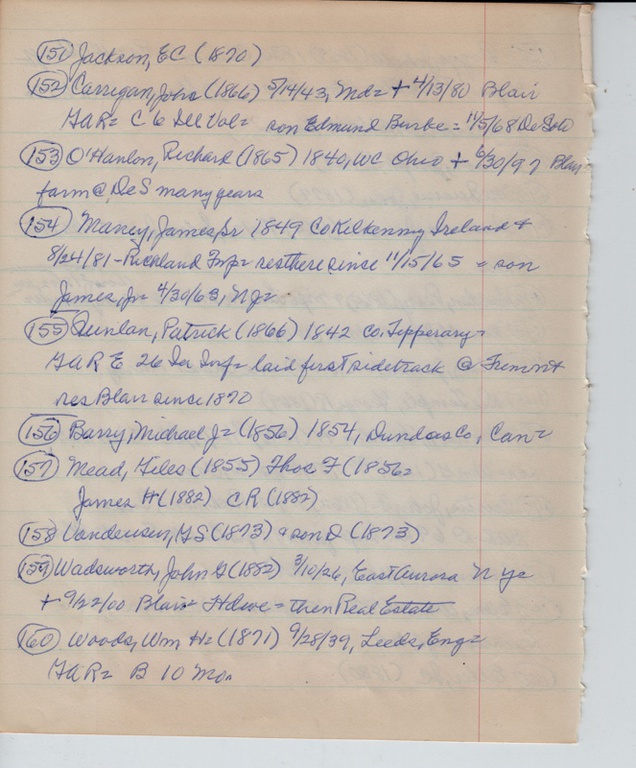 (151) Jackson, EC (1870)
(152) Carrigan, John (1866) 5/14/43, Md= + 4/13/80 Blair
GAR= C 6 Ill Vol= son Edmund Burke = 11/5/68 DeSoto
(153) O'Hanlon, Richard (1865) 1840, WC Ohio + 6/30/97 Blair=
farm @ DeS many years
(154) Maney, James, Sr 1849 Co Kilkenny Ireland +
8/24/81 - Richland Twp= res there since 11/15/65 = son
James, Jr 4/30/63, NJ=
(155) Qunlan, Patrick (1866) 1842 Co. Tipperary=
GAR E 26 Inf= laid first sidetrack @ Fremont
res Blair since 1870
(156) Barry, Michael J= (1856) 1854, Dundas Co, Can=
(157) Mead, Giles (1855) Thos F (1856=
James H (1882) CR (1882)
(158) Vandeusen, GS (1873) + son D (1873)
(159) Wadsworth, John G (1882) 3/10/26, East Aurora N Y=
+ 9/22/00 Blair= Hdwe = then Real Estate
(160) Woods, Wm H= (1871) 9/28/39, Leeds, Eng=
GAR= B 10 Mo.